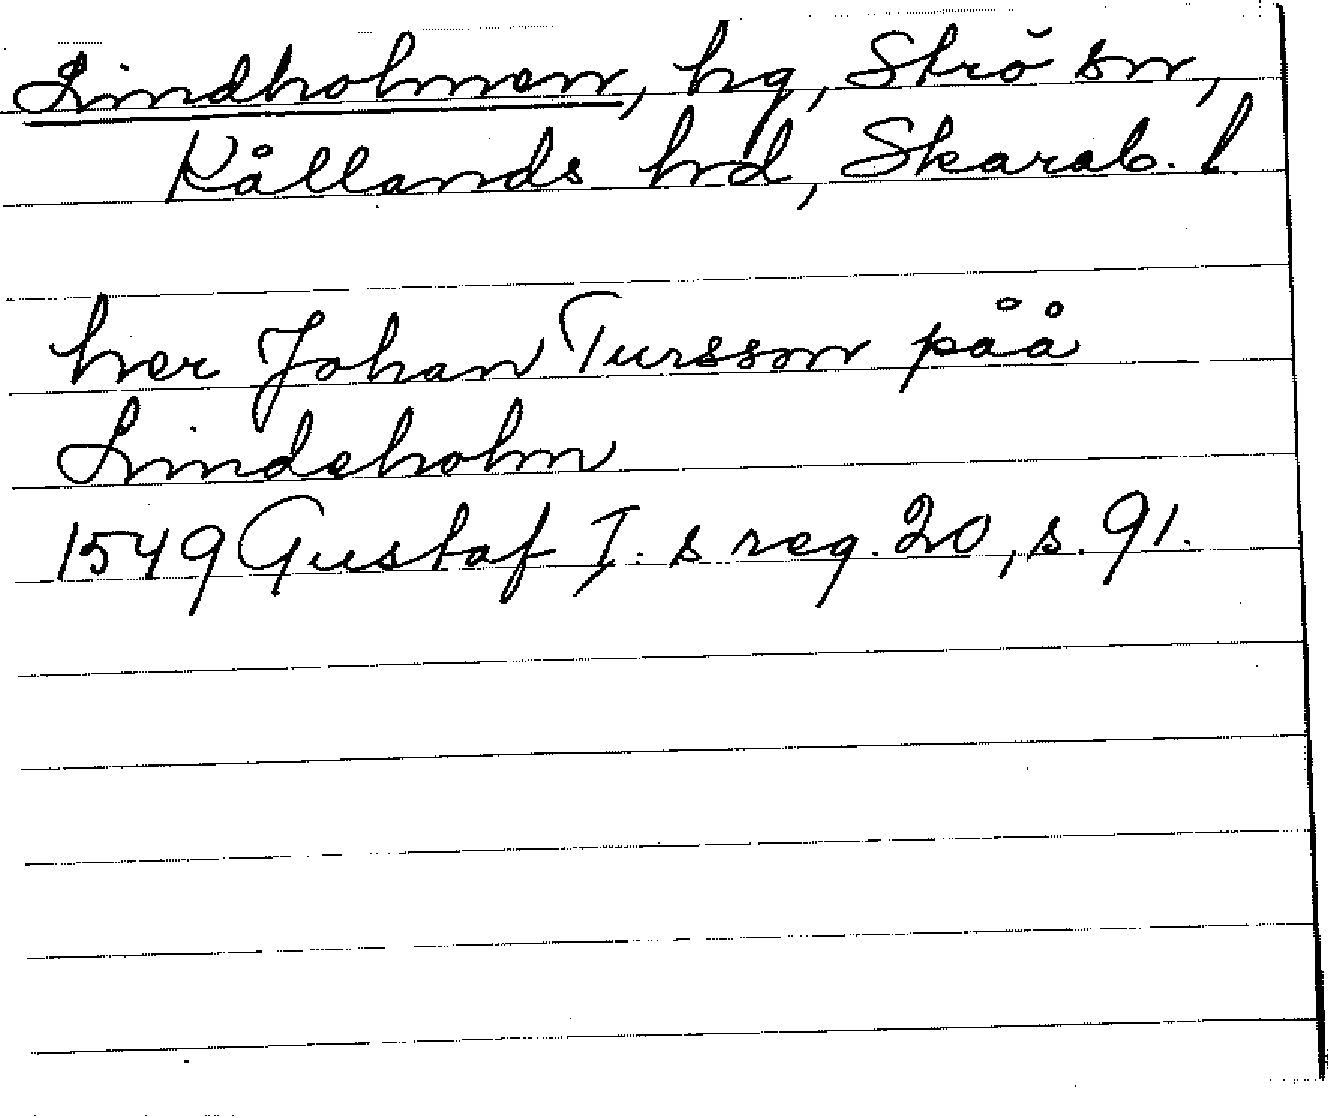 Lindholmen, hg, Strö sn,
Kållands hd, Skarab. l.
her Johan Tursson påå
Lindeholm
1549 Gustaf I. s reg. 20, s. 91.